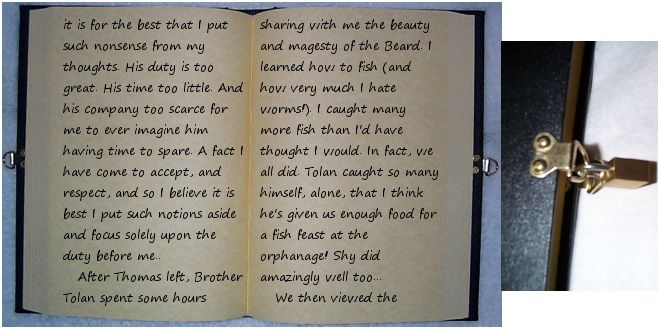 it is for the best that I put
such nonsense from my
thoughts. His duty is too
great. His time too little. And
his company too scarce for
me to ever imagine him
having time to spare. A fact I
have come to accept, and
respect, and so I believe it is
best I put such notions aside
and focus solely upon the
duty before me..
After Thomas left, Brother
Tolan spent some hours
sharing with me the beauty
and magesty of the Beard. I
learned how to fish (and
how very much I hate
worms!). I caught many
more fish than I'd have
thought I would. In fact, we
all did. Tolan caught so many
himself, alone, that I think
he's given us enough food for
a fish feast at the
orphanage! Shy did
amazingly well too...
We then viewed the